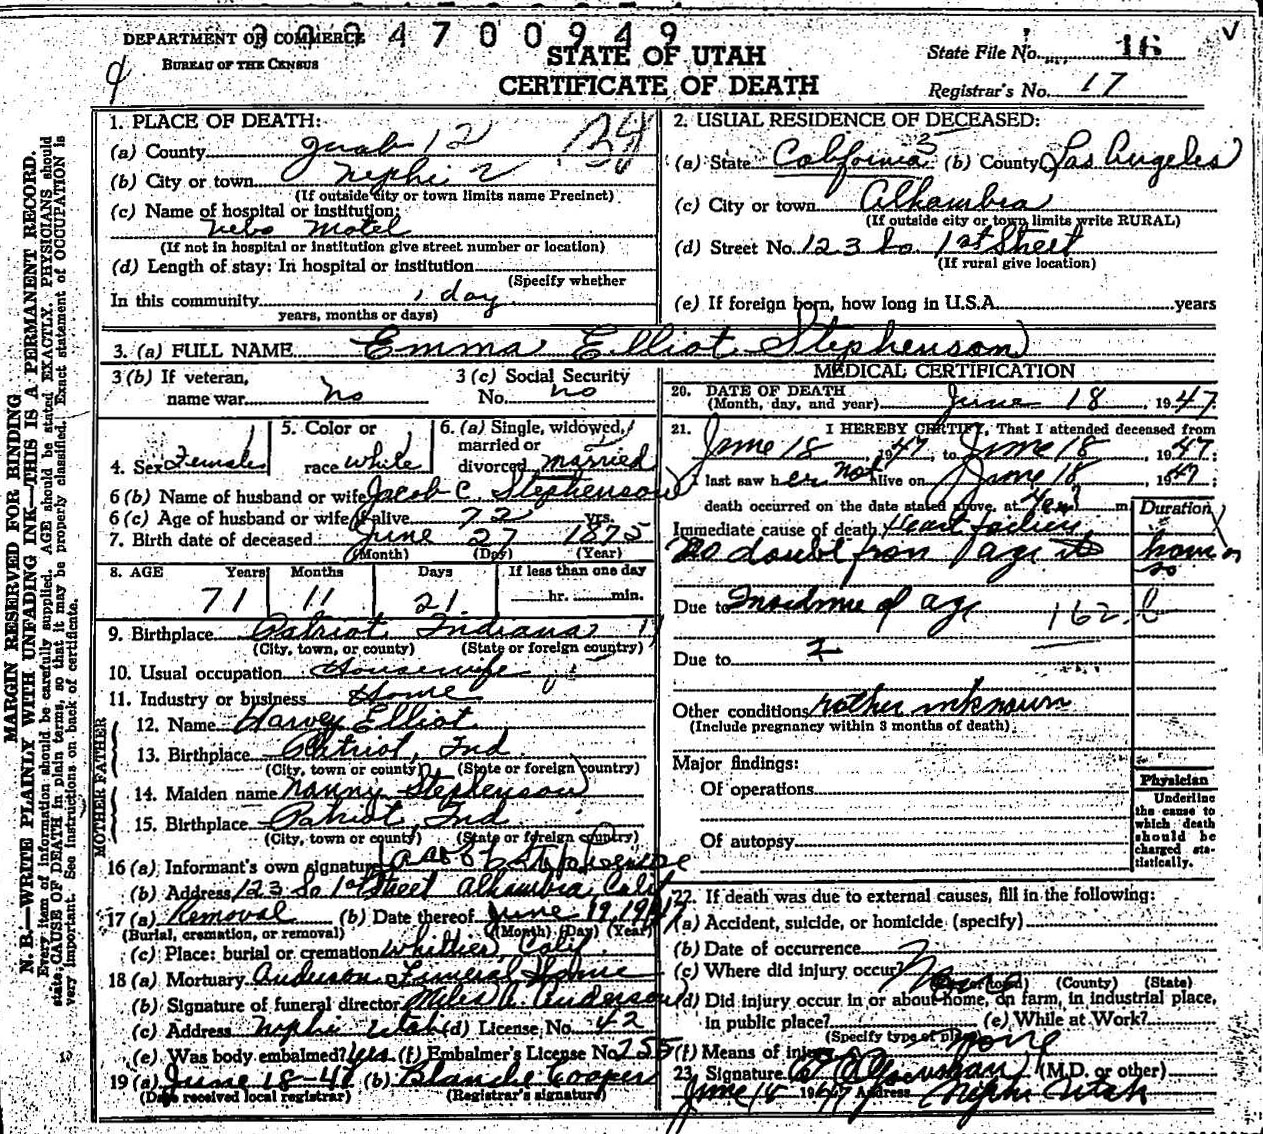 0 0 4 7 0 0 9 4 9
DEPARTMENT OF COMMERCE
BUREAU OF THE CENSUS
STATE OF UTAH
CERTIFICATE OF DEATH
State File No. 16
Registrar's No. 17
MARGIN RESERVED FOR BINDING
N. B.—WRITE PLAINLY WITH UNFADING INK—THIS IS A PERMANENT RECORD.
Every item of information should be carefully supplied. AGE should be stated EXACTLY. PHYSICIANS should
state CAUSE OF DEATH in plain terms, so that it may be properly classified. Exact statement of OCCUPATION is
very important. See instructions on back of certificate.
1. PLACE OF DEATH:
(a) County Juab 12
(b) City or town Nephi
(If outside city or town limits name Precinct)
(c) Name of hospital or institution:
Nebo Motel
(If not in hospital or institution give street number or location)
(d) Length of stay: In hospital or institution
(Specify whether
In this community 1 day
years, months or days)
2. USUAL RESIDENCE OF DECEASED:
(a) State California (b) County Los Angeles
(c) City or town Alhambra
(If outside city or town limits write RURAL)
(d) Street No. 123 So 1st Street
(If rural give location)
(e) If foreign born, how long in U.S.A. years
3. (a) FULL NAME Emma Elliot Stephenson
3 (b) If veteran, name war no
3 (c) Social Security No. no
4. Sex Female
5. Color or race white
6. (a) Single, widowed, married or divorced married
6 (b) Name of husband or wife Jacob C Stephenson
6 (c) Age of husband or wife if alive 72 yrs.
7. Birth date of deceased June 27 1875
(Month) (Day) (Year)
8. AGE Years Months Days If less than one day
71 11 21 hr. min.
9. Birthplace Patriot Indiana
(City, town, or county) (State or foreign country)
10. Usual occupation Housewife
11. Industry or business Home
FATHER
12. Name Harvey Elliot
13. Birthplace Patriot, Ind
(City, town or county) (State or foreign country)
MOTHER
14. Maiden name Nanny Stephenson
15. Birthplace Patriot, Ind
(City, town or county) (State or foreign country)
16 (a) Informant's own signature
(b) Address 123 So 1st Street Alhambra, Calif
17 (a) Removal (b) Date thereof June 19, 1947
(Burial, cremation, or removal) (Month) (Day) (Year)
(c) Place: burial or cremation Whittier, Calif
18 (a) Mortuary Anderson Funeral Home
(b) Signature of funeral director Miles A. Anderson
(c) Address Nephi Utah (d) License No. 42
(e) Was body embalmed? Yes (f) Embalmer's License No. 255
19 (a) June 18-47 (b) Blanche Cooper
(Date received local registrar) (Registrar's signature)
MEDICAL CERTIFICATION
20. DATE OF DEATH
(Month, day, and year) June 18, 1947
21. I HEREBY CERTIFY, That I attended deceased from
June 18, 1947, to June 18, 1947;
I last saw her not alive on June 18, 1947;
death occurred on the date stated above, at m.
Duration
Immediate cause of death Heart failure
No doubt from age
Due to of age 162.
Due to
Other conditions rather unknown
(Include pregnancy within 3 months of death)
Major findings:
Of operations
Of autopsy
Physician
Underline
the cause to
which death
should be
charged sta-
tistically.
22. If death was due to external causes, fill in the following:
(a) Accident, suicide, or homicide (specify)
(b) Date of occurrence
(c) Where did injury occur? None
(City or town) (County) (State)
(d) Did injury occur in or about home, on farm, in industrial place,
in public place? (e) While at Work?
(Specify type of place)
(f) Means of injury none
23. Signature (M.D. or other)
June 18 1947 Address Nephi Utah